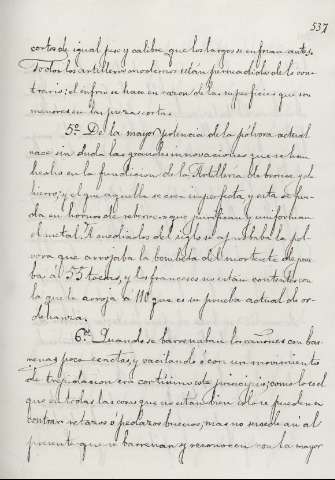 537
cortos de igual peso y calibre que los largos se enfrian antes.
Todos los artilleros modernos están persuadidos de lo con-
trario; el enfriar se hace en razon de las superficies que son
menores en las piezas cortas.
5º De la mayor potencia de la pólvora actual
nace sin duda las grandes innovaciones que se han
hecho en la fundicion de la Artilleria de bronce y de
hierro, y el que aquella se crea imperfecta y esta se fun-
da en hornos de reberbero que purifican y uniforman
el metal. A mediados del siglo se apuntaba la pol-
vora que arrojaba la bomba del morterete de prue
ba al 55 toesas, y los franceses no están contentos con
la que la arroja a 110 que es su prueba actual de or-
denanza.
6º Quando se barrenaban los cañones con bar-
renas poco exactas, y vacilando ó con un movimiento
de trepidacion era certísimo este principio; como lo es el
que en todas las cosas que no están bien se pueden en
contrar retazos ó pedazos buenos; mas no sucede asi al
presente que se barrenan y reconocen con la mayor